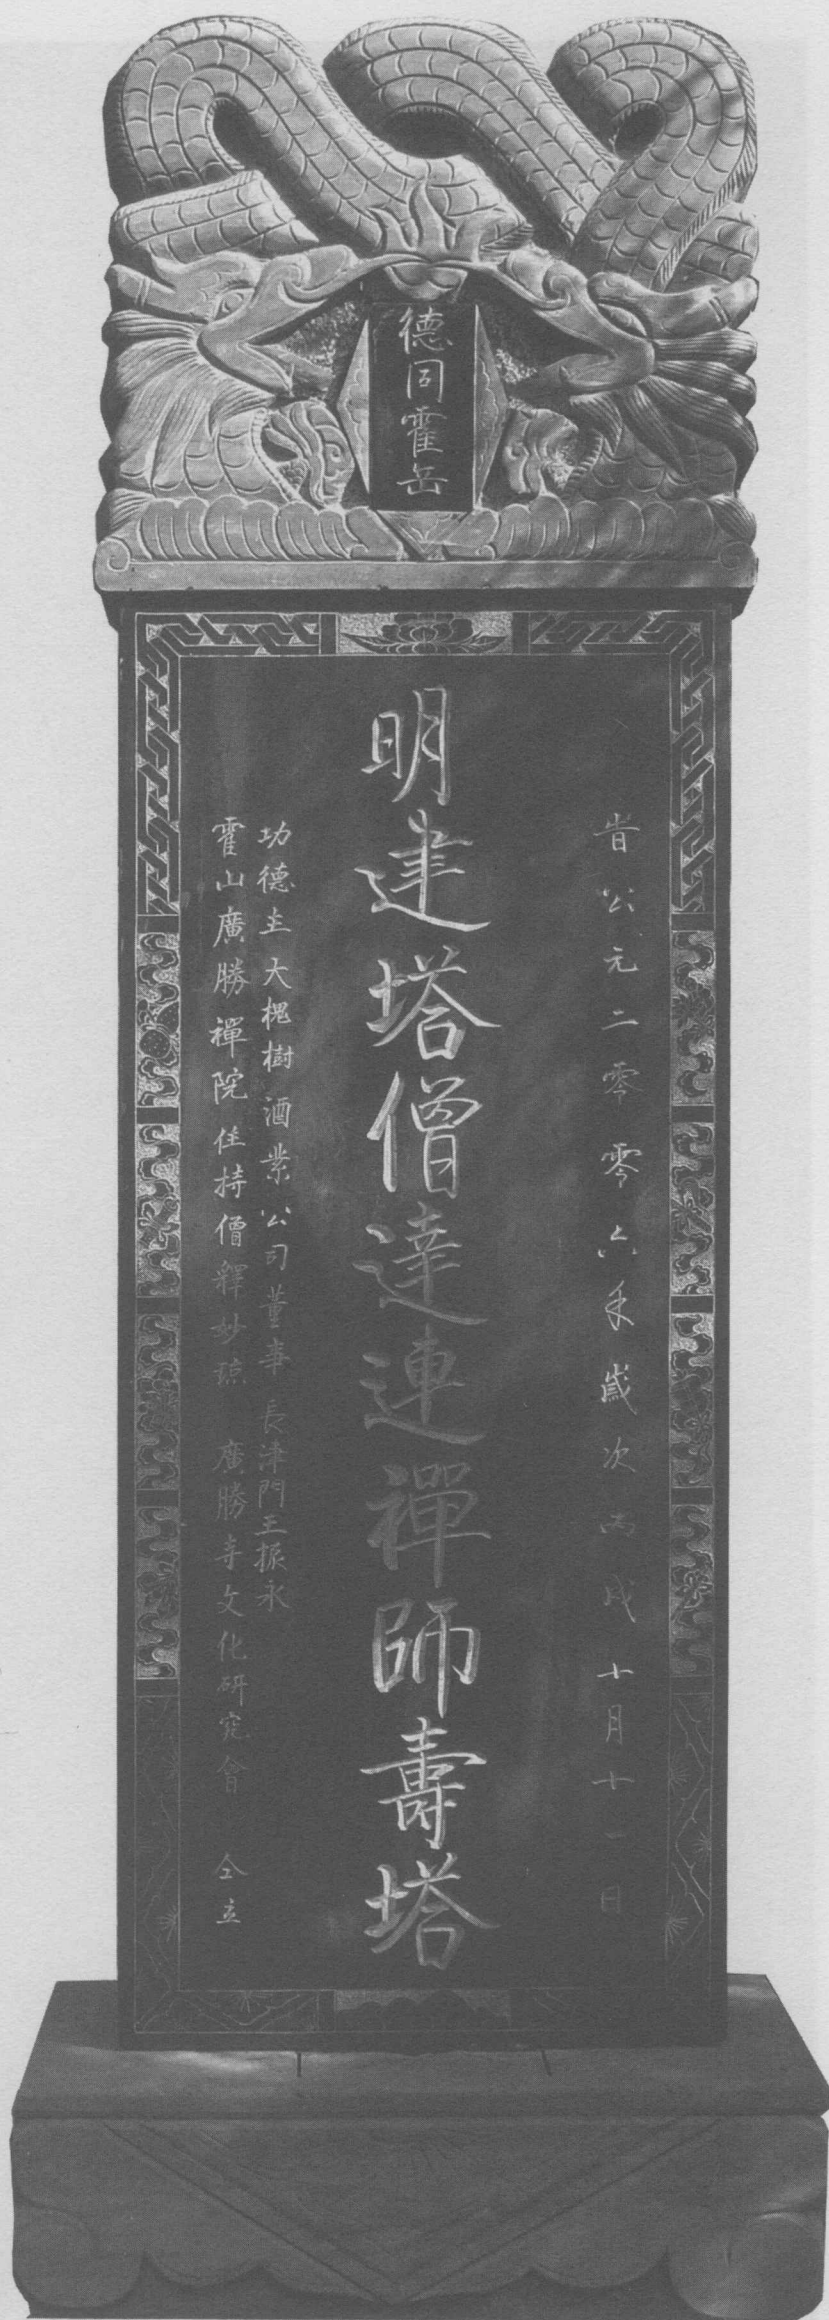 德同霍岳
旹公元二零零六年歲次丙戌十月十一日
明建塔僧達連禪師壽塔
功德主大槐樹酒業公司董事長津門王振永
霍山廣勝禪院住持僧釋妙 廣勝寺文化研究會 仝立